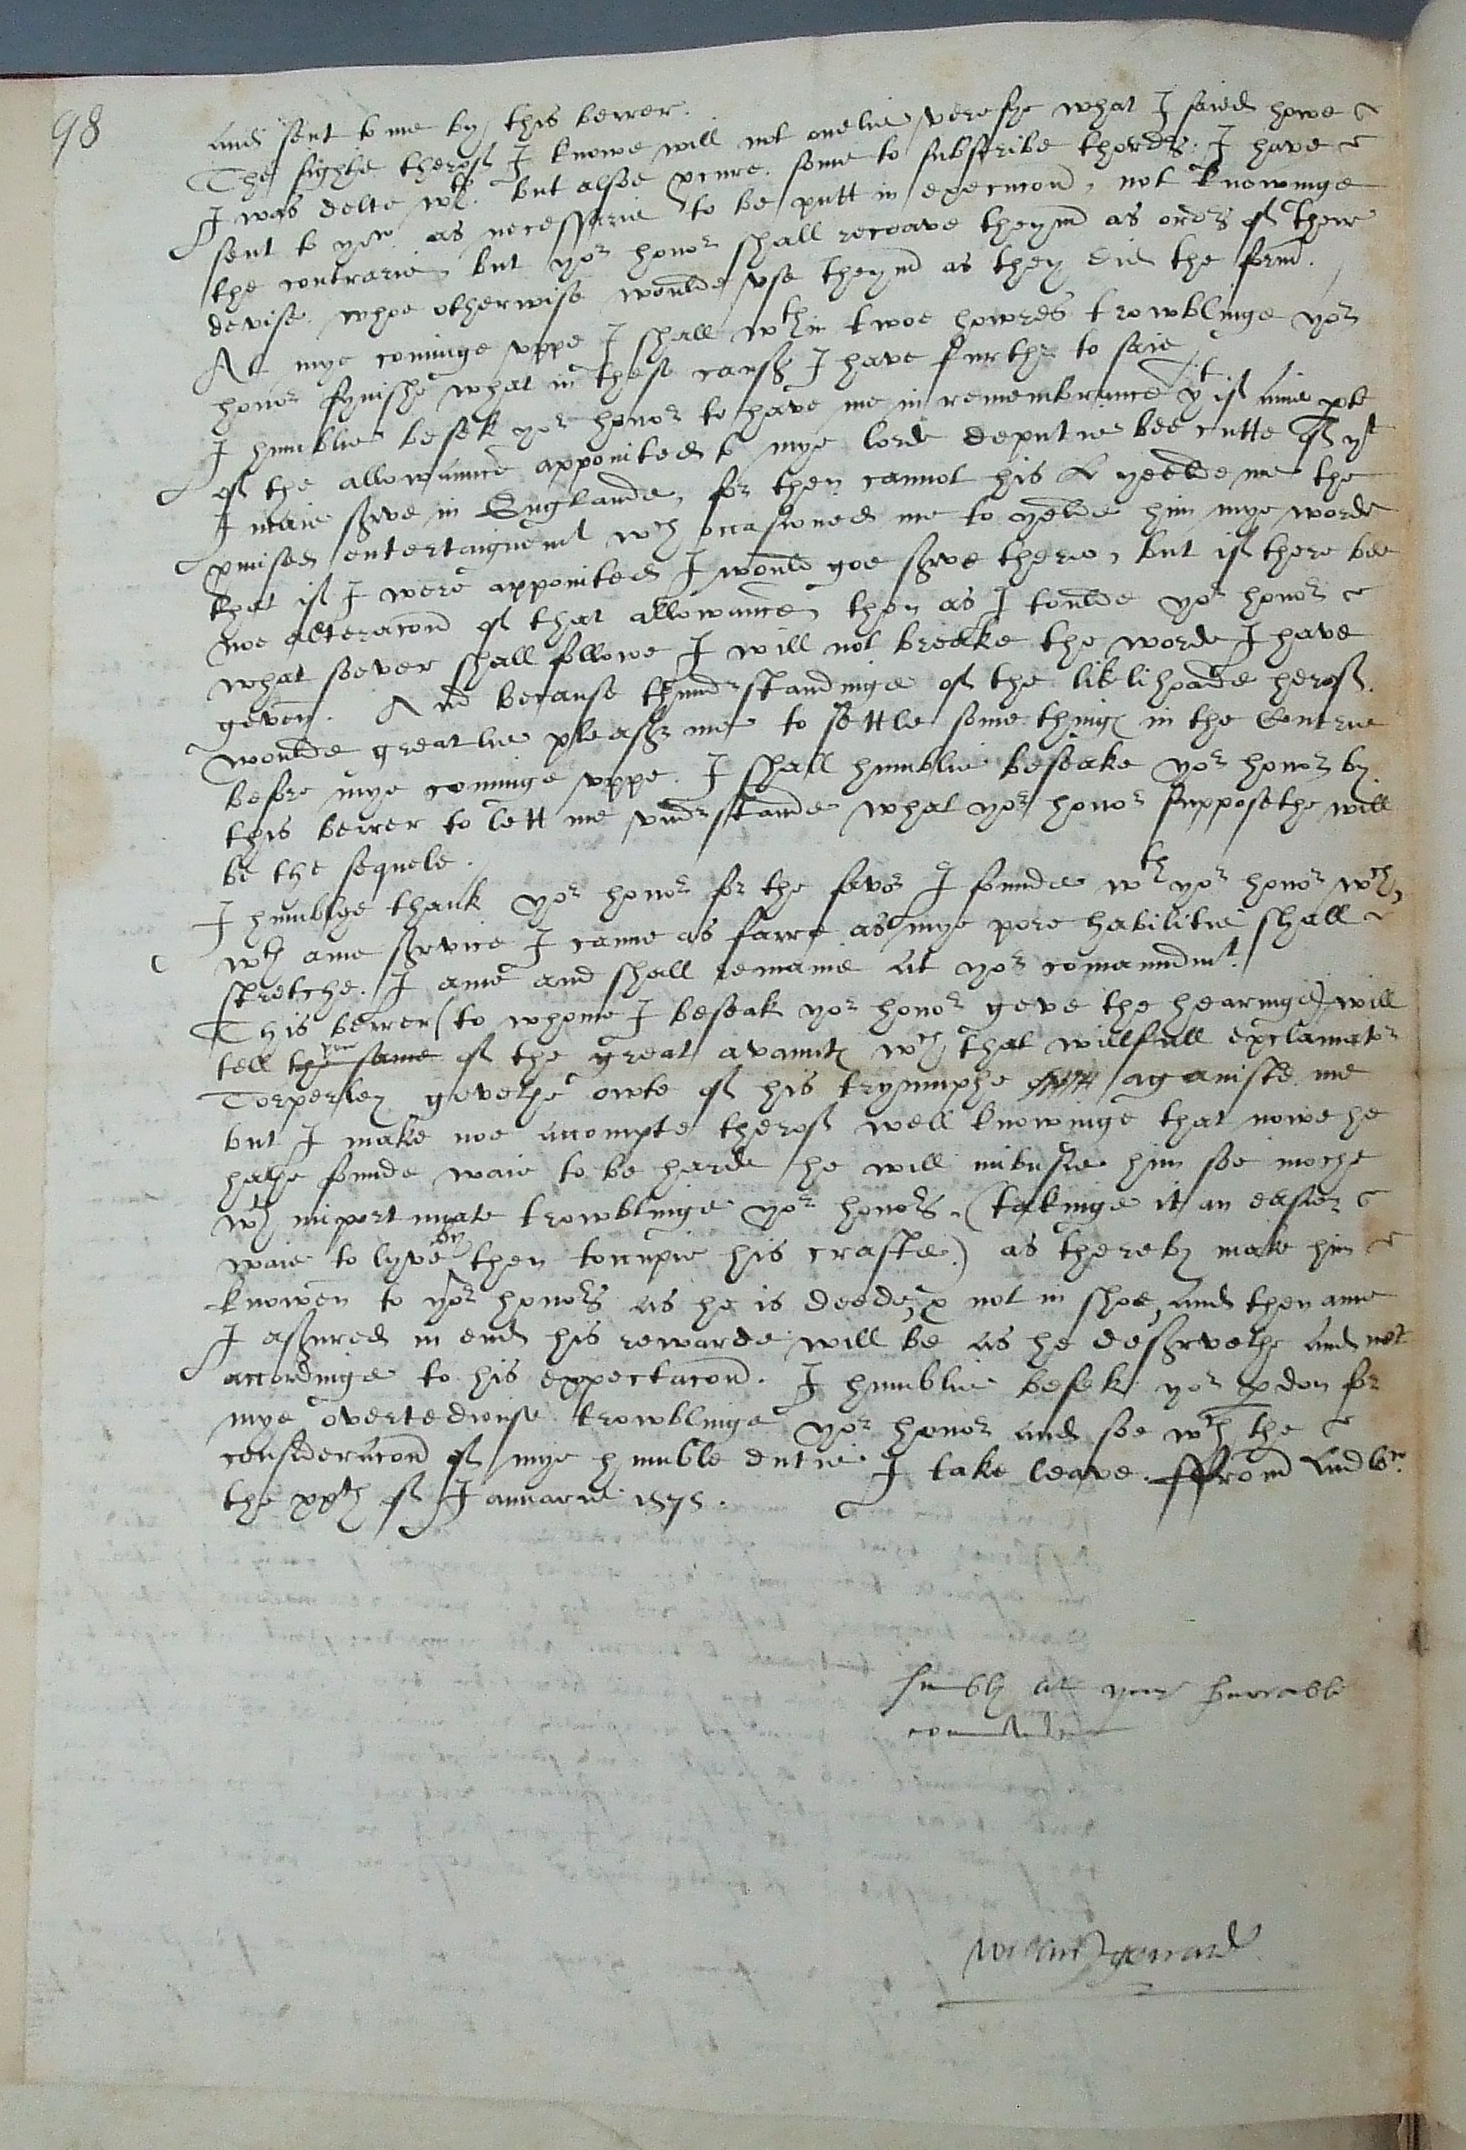 98
and sent to me by this berrer.
The sighte therof I knowe will not onelie verefye what I saied howe
I was delte wth. but alsoe pcure some to subscribe thorders. I have
sent to yow as necessarie to be putt in execucond, not knowinge
the contrarie, but yor honor shall receave theymd as orders of their
devise. whoe otherwise woulde vse theymd as they did the formd.
At mye cominge vppe I shall wthin twoe howres trowblinge yor
honor fynishe what in these causes I have furthr to saie
I humblie besek yor honor to have me in remembrance yt if anie pte
of the allowaunce appointed to mye lorde deputie bee cutte of yt
I maie serve in Englande, for then cannot his L yeelde me the
pmised entertaignemt wch occasioned me to yelde him mye worde
that if I were appointed I would goe serve there, but if there bee
noe alteracond of that allowance, then as I toulde yor honor
what soever shall followe I will not breake the worde I have
geven. And because thundrstandinge of the liklihoade herof.
woulde greatlie please me to settle some things in the Contrie
before mye cominge vppe. I shall humblie beseake yor honor by
this berrer to lett me vndrstande what yor honor supposethe will
be the sequele.
I humblye thank yor honor for the favor I founde wth yor honor wch,
wth anie service I canne as farre as mye pore habilitie shall
stretche. I ame and shall remaine at yor comaundmt.
This berrer (to whome I beseak yor honor geve the hearinge) will
tell the same you of the great avaunts wch that willfull exclamator
Torperley gevethe owte of his tryumphe againste me
but I make noe accompte therof well knowinge that nowe he
hathe founde waie to be harde he will imbusie him soe moche
wth importunate trowblinge yor honors, (takinge it an easier
waie to lyve by then toccupie his crafte) as thereby make him
knowen to yor honors as he is deede, & not in shoe, and then ame
I assured in end his rewarde will be as he deservethe and not
accordinge to his expectacond. I humblie besek yor pdon for
mye overtediouse trowblinge yor honor and soe wth the
consideracond of mye humble dutie I take leave. ffromd
the xxth of Januarie 1575.
humbly at your honorable
comandem
Willm Gerrard